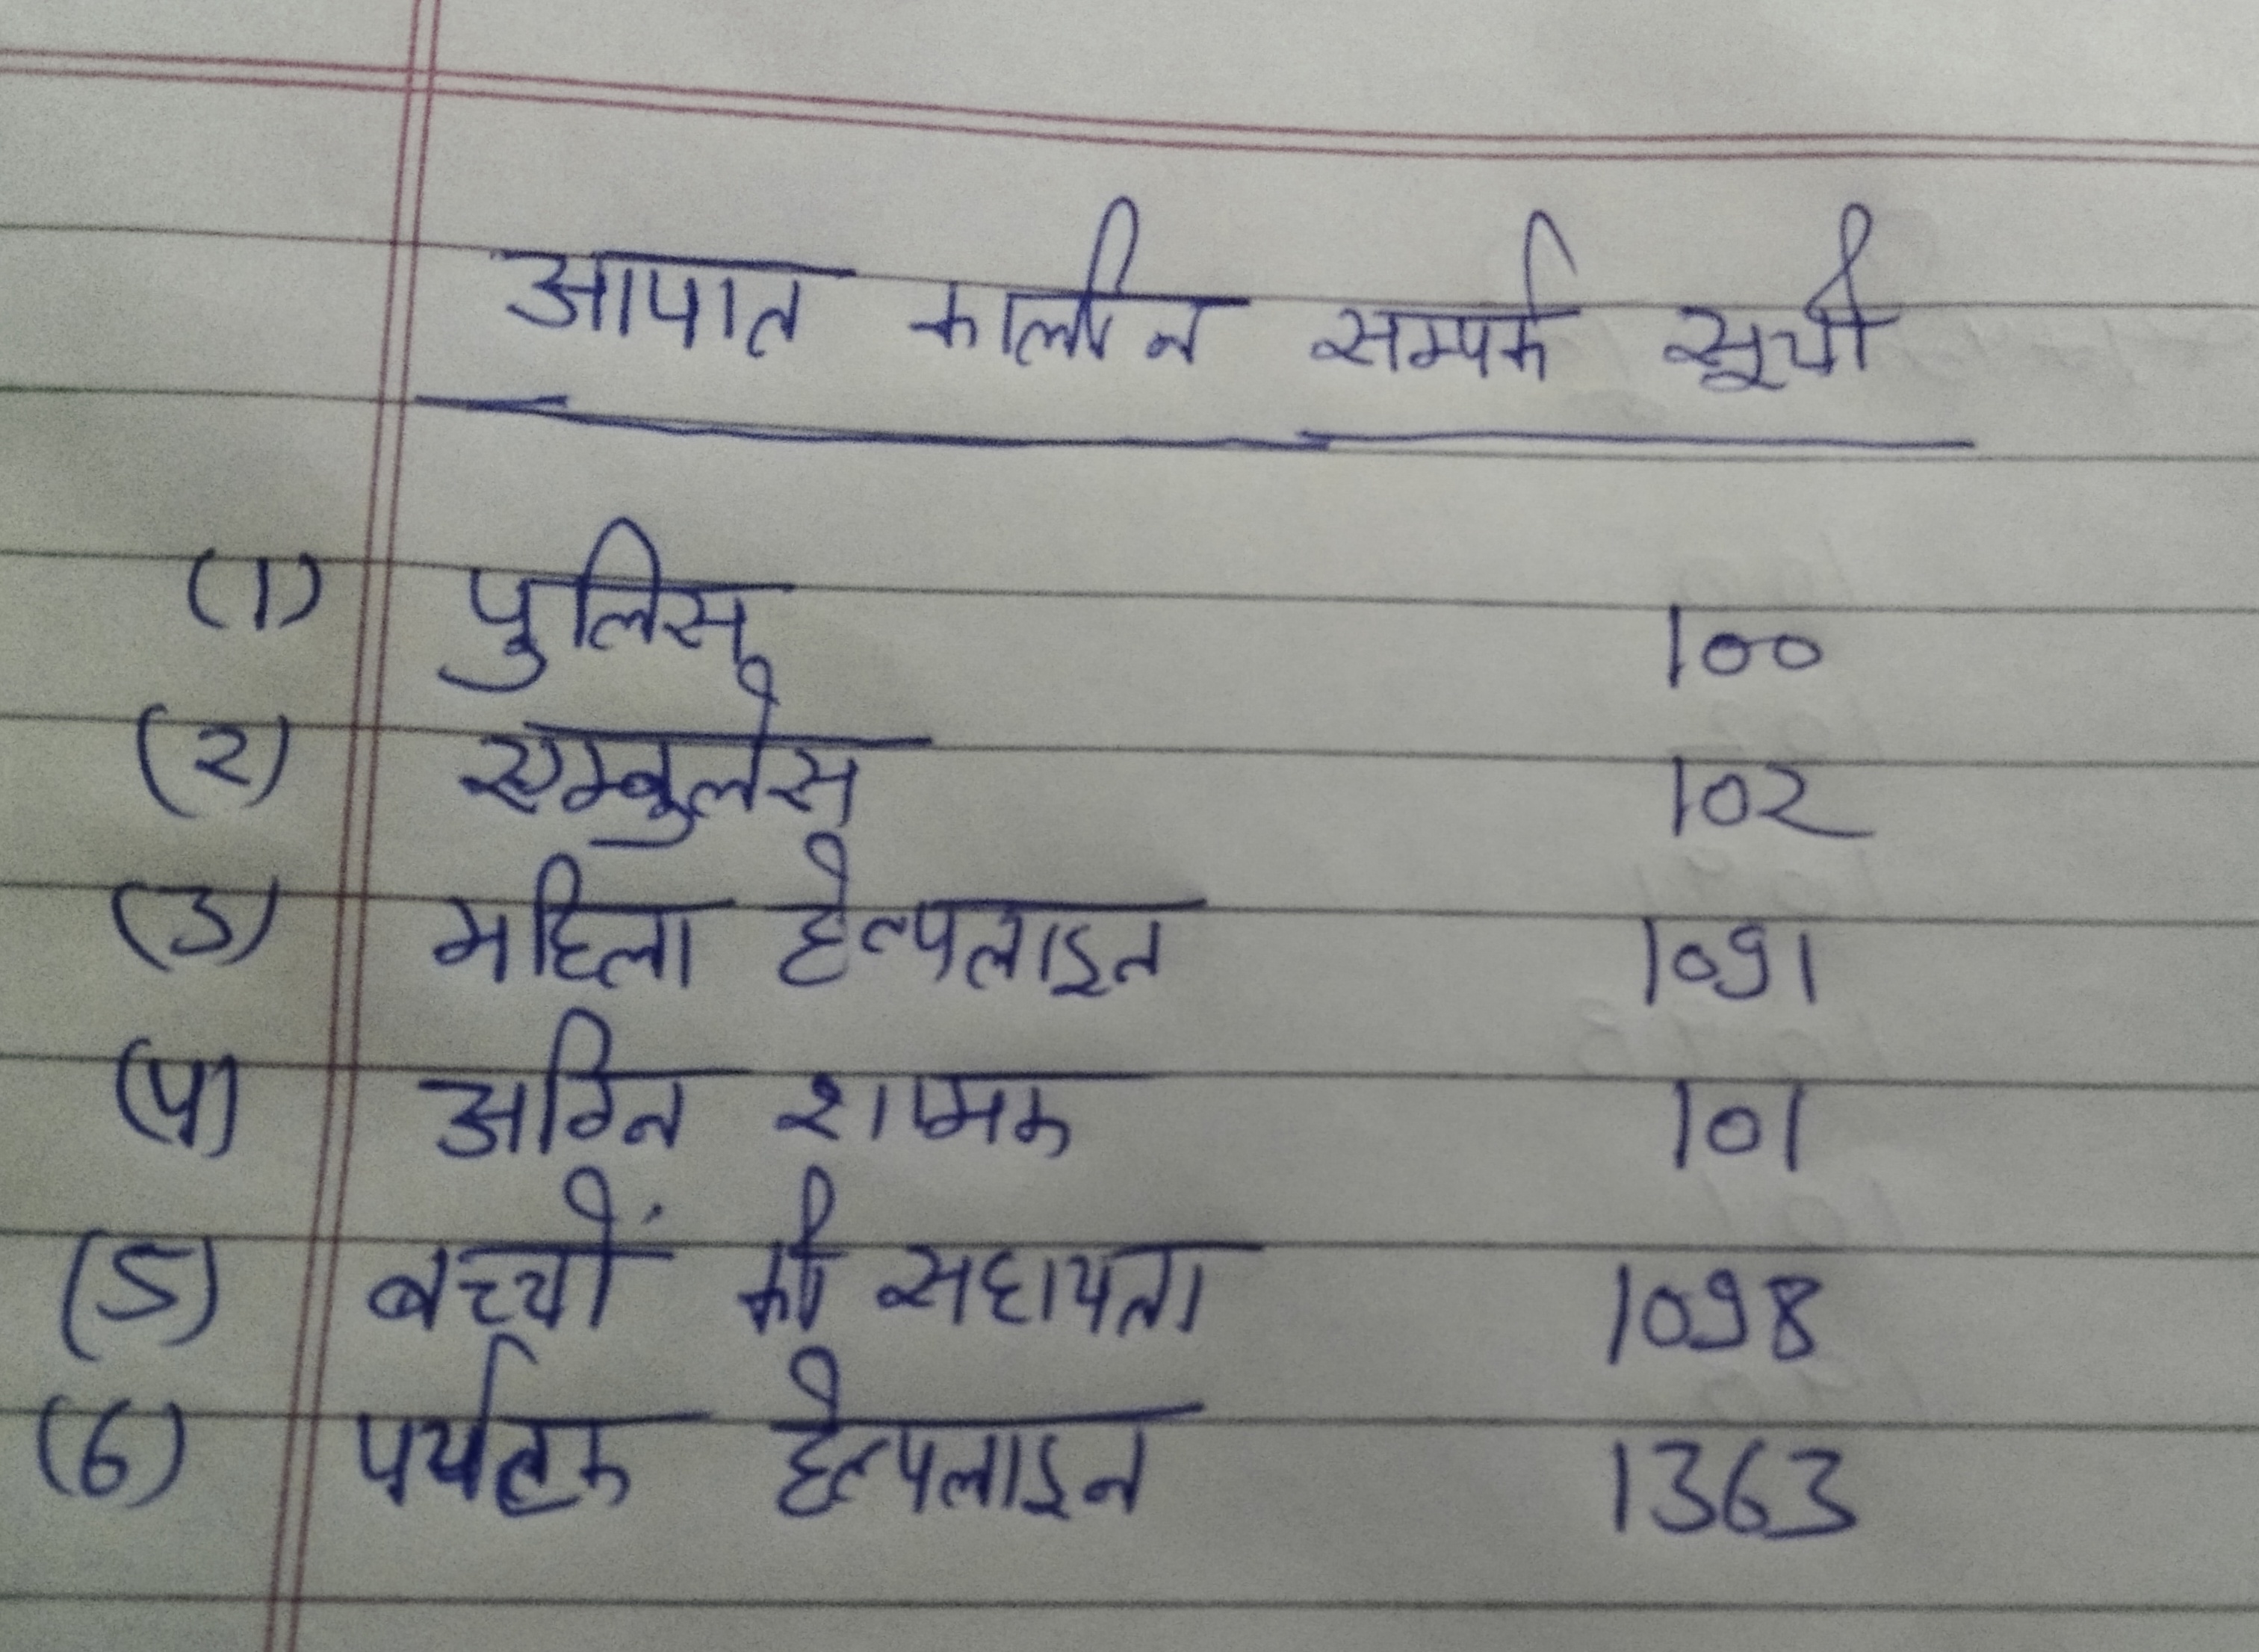 आपात कालीन सम्पर्क सूची
(1) पुलिस 100
(2) एम्बुलेस 102
(3) महिला हेल्पलाइन 1091
(4) अग्नि शामक 101
(5) बच्चों की सहायता 1098
(6) पर्यटक हेल्पलाइन 1363